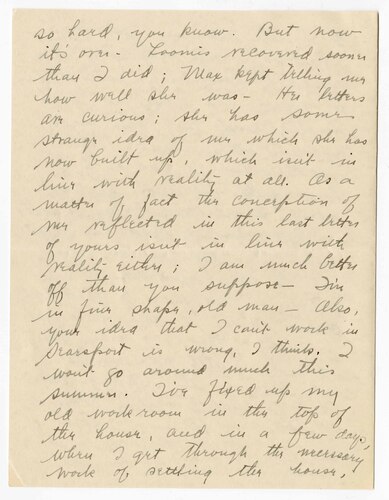 so hard, you know. But now
it's over - Loomis recovered sooner
than I did; Max kept telling me
how well she was - Her letters
are curious; she has some
strange idea of me which she has
now built up, which isn't in
line with reality at all. As a
matter of fact the conception of
me reflected in this last letter
of yours isn't in line with
reality either; I am much better
off than you suppose - I'm
in fine shape, old man - Also,
your idea that I can't work in
Searsport is wrong, I think. I
won't go around much this
summer. I've fixed up my
old workroom in the top of
the house, and in a few days,
when I get through the necessary
work of settling the house,